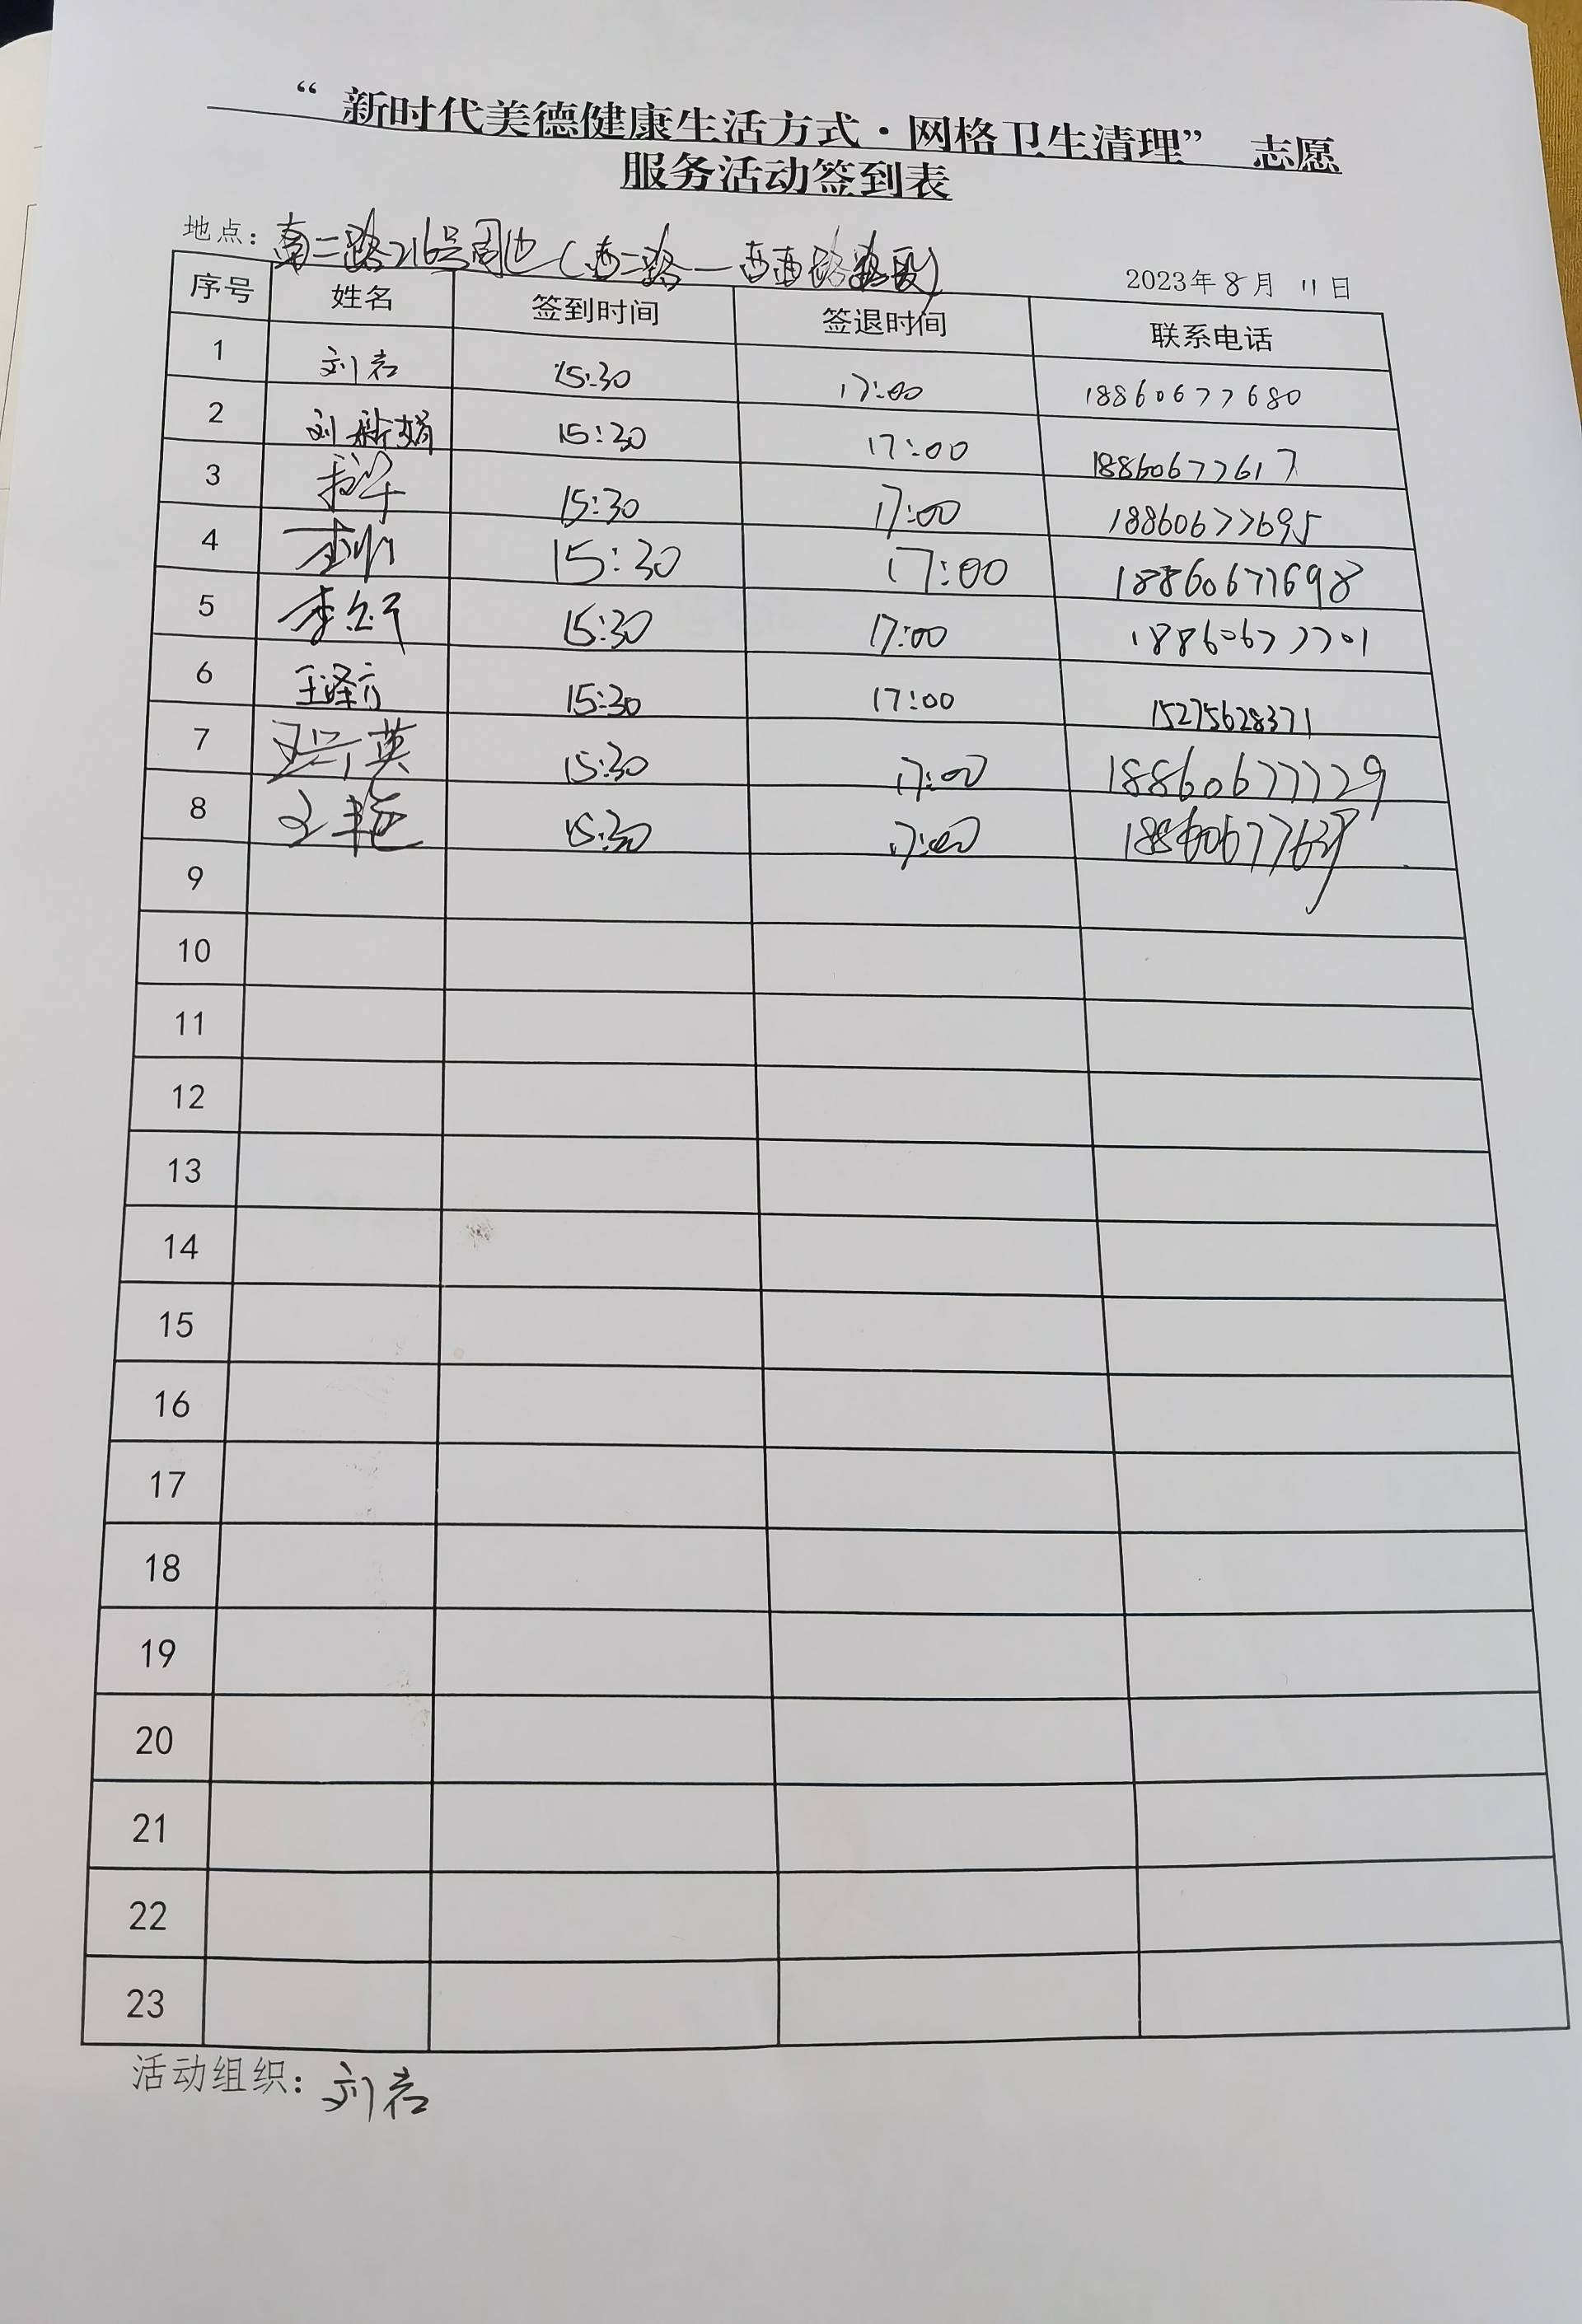 “新时代美德健康生活方式·网格卫生清理” 志愿
服务活动签到表
地点：南二路216号周边（西二路—西四路路段）
2023年8月11日
序号 姓名 签到时间 签退时间 联系电话
1 刘君 15:30 17:00 18860677680
2 刘新娟 15:30 17:00 18860677617
3 15:30 17:00 18860677695
4 15:30 17:00 18860677698
5 李 15:30 17:00 18860677701
6 王泽方 15:30 17:00 15275628371
7 英 15:30 17:00 18860677729
8 艳 15:30 17:00
9
10
11
12
13
14
15
16
17
18
19
20
21
22
23
活动组织：刘君